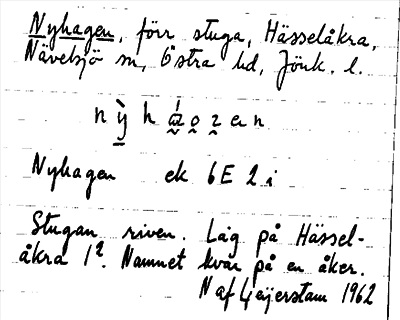 Nyhagen, förr stuga, Hässelåkra,
Nävelsjö sn, Östra hd, Jönk. l.
Nyhagen ek 6E 2 i
Stugan riven. Låg på Hässel-
åkra 1². Namnet kvar på en åker.
N af Geijerstam 1962